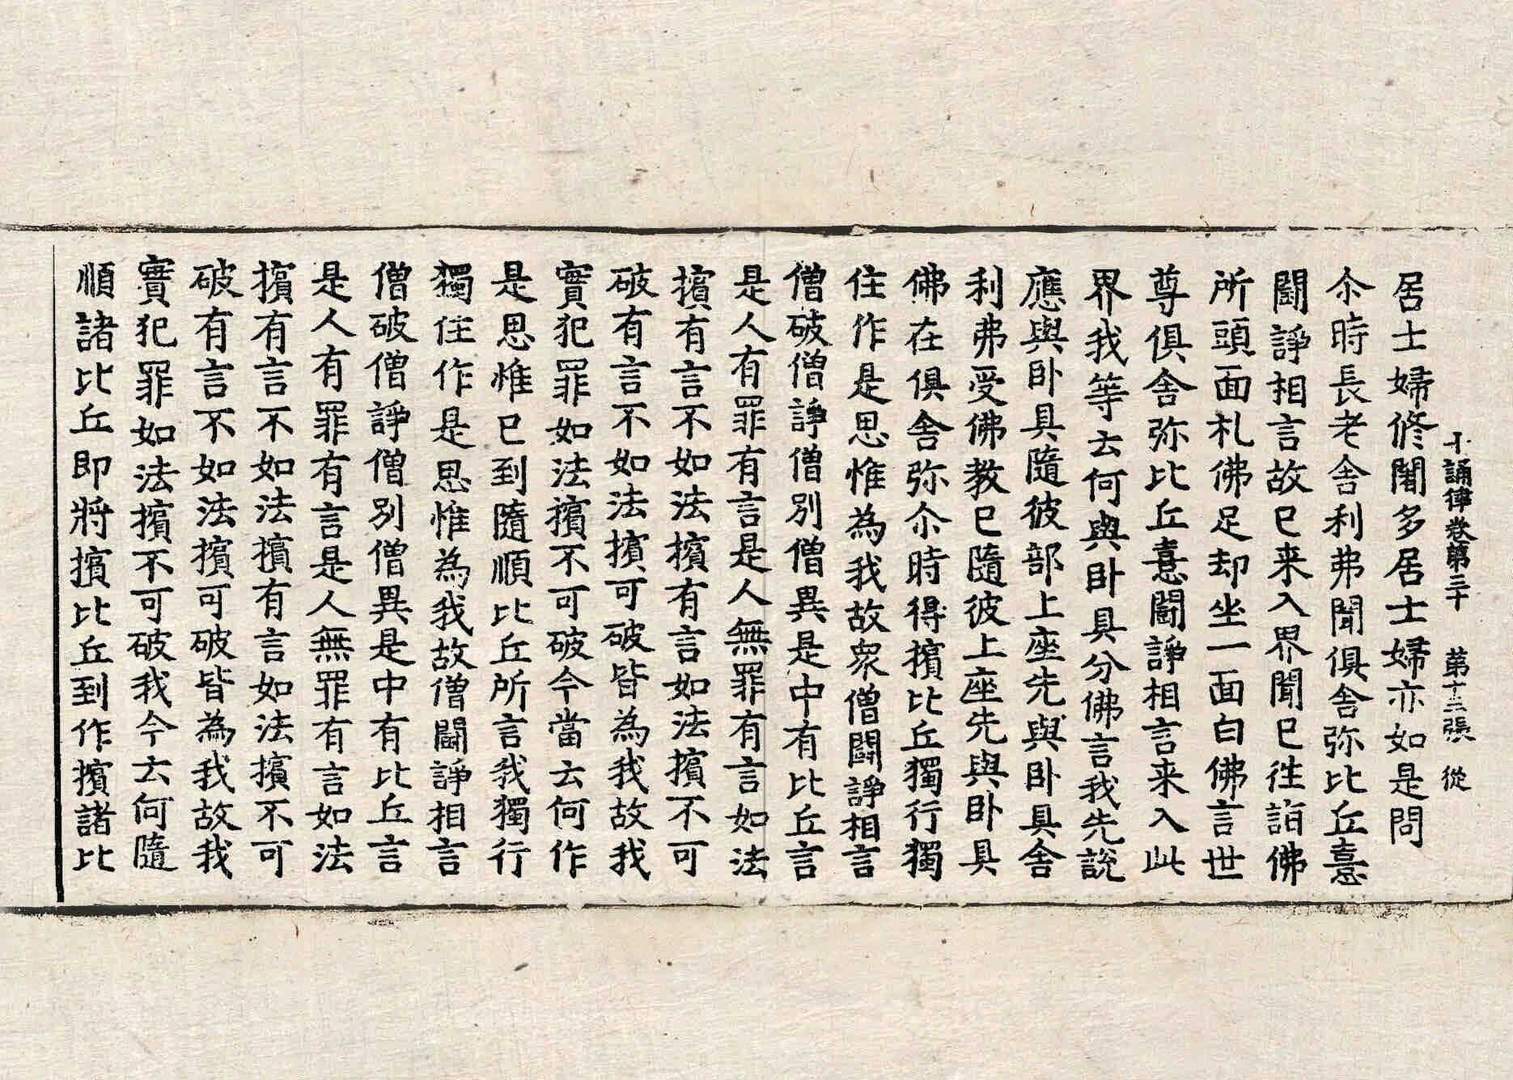 十誦律卷第三十　第十三張　從
居士婦修闍多居士婦亦如是問
尒時長老舍利弗聞俱舍弥比丘憙
鬪諍相言故已来入界聞已往詣佛
所頭面礼佛足却坐一面白佛言世
尊俱舍弥比丘憙鬪諍相言来入此
界我等云何與卧具分佛言我先說
應與卧具隨彼部上座先與卧具舍
利弗受佛教已隨彼上座先與卧具
佛在俱舍弥尒時得擯比丘獨行獨
住作是思惟為我故衆僧鬪諍相言
僧破僧諍僧別僧異是中有比丘言
是人有罪有言是人無罪有言如法
擯有言不如法擯有言如法擯不可
破有言不如法擯可破皆為我故我
實犯罪如法擯不可破今當云何作
是思惟已到隨順比丘所言我獨行
獨住作是思惟為我故僧鬪諍相言
僧破僧諍僧別僧異是中有比丘言
是人有罪有言是人無罪有言如法
擯有言不如法擯有言如法擯不可
破有言不如法擯可破皆為我故我
實犯罪如法擯不可破我今云何隨
順諸比丘即將擯比丘到作擯諸比